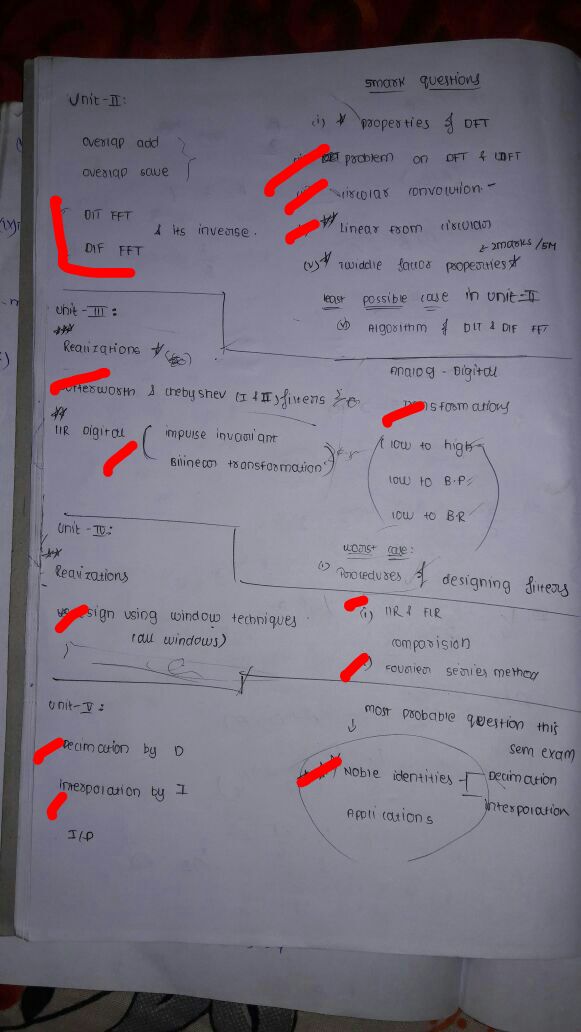 5mark questions
Unit-II:
overlap add
overlap save
DIT FFT
DIF FFT
& its inverse.
(i) * properties of DFT
problem on DFT & IDFT
circular convolution -
** Linear from circular
← 2marks/5M
(v) * Twiddle factor properties *
least possible case in unit-II
(vi) Algorithm of DIT & DIF FFT
Unit-III:
***
Realizations *
Butterworth & chebyshev (I & II) filters
**
IIR Digital
impulse invariant
Bilinear transformation
Analog - Digital
Transformations
low to high
low to B.P
low to B.R
Unit-IV:
**
Realizations
Design using window techniques.
(all windows)
worst case:
(i) Procedures of designing filters
(i) IIR & FIR
comparision
Fourier series method
Unit-V:
Decimation by D
Interpolation by I
I/D
most probable question this
sem exam
Noble identities
Decimation
interpolation
Applications